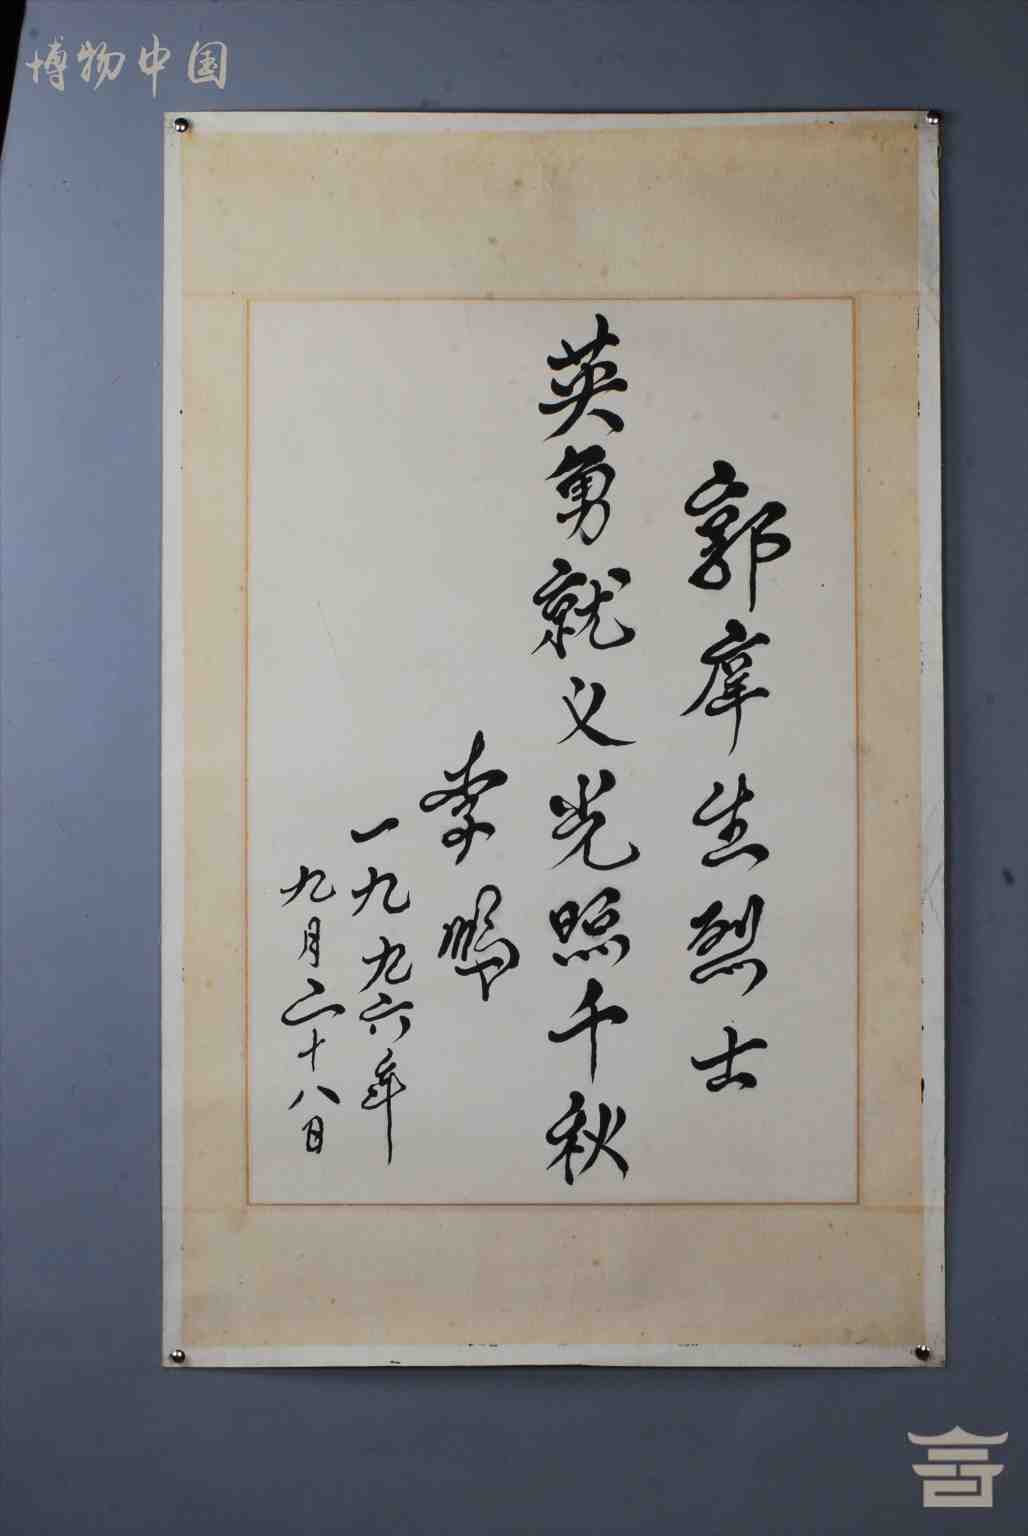 博物中国
郭庠生烈士
英勇就义光照千秋
李鹏
一九九六年
九月二十八日